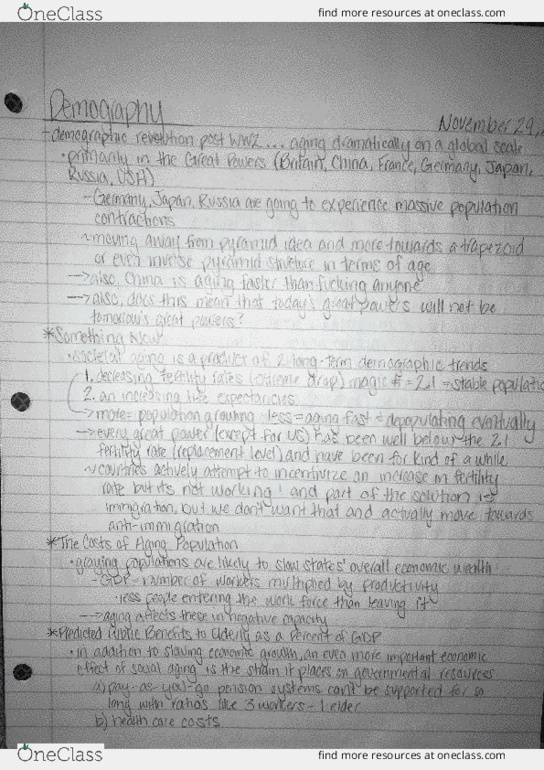 OneClass
find more resources at oneclass.com
Demography
November 29,
-demographic revolution post WW2... aging dramatically on a global scale
•primarily in the Great Powers (Britain, China, France, Germany, Japan,
Russia, USA)
-Germany, Japan, Russia are going to experience massive population
contractions
~moving away from pyramid idea and more towards a trapezoid
or even inverse pyramid structure in terms of age
->also, China is aging faster than fucking anyone
->also, does this mean that today's great powers will not be
tomorrow's great powers?
*Something New
•societal aging is a product of 2 long-term demographic trends
1. decreasing fertility rates (extreme drop) magic # = 2.1 = stable populatio
2. an increasing life expectancies
->more = population growing less = aging fast = depopulating eventually
->every great power (except for US) has been well below the 2.1
fertility rate (replacement level) and have been for kind of a while
~countries actively attempt to incentivize an increase in fertility
rate but its not working! and part of the solution is
immigration, but we don't want that and actually move towards
anti-immigration
*The Costs of Aging Population
•graying populations are likely to slow states' overall economic wealth
-GDP = number of workers multiplied by productivity
•less people entering the work force than leaving it
->aging affects these in negative capacity
*Predicted Public Benefits to Elderly as a Percent of GDP
•in addition to slowing economic growth, an even more important economic
effect of social aging is the strain it places on governmental resources
a) pay-as-you-go pension systems can't be supported for so
long with ratios like 3 workers - 1 elder
b) health care costs
OneClass
find more resources at oneclass.com